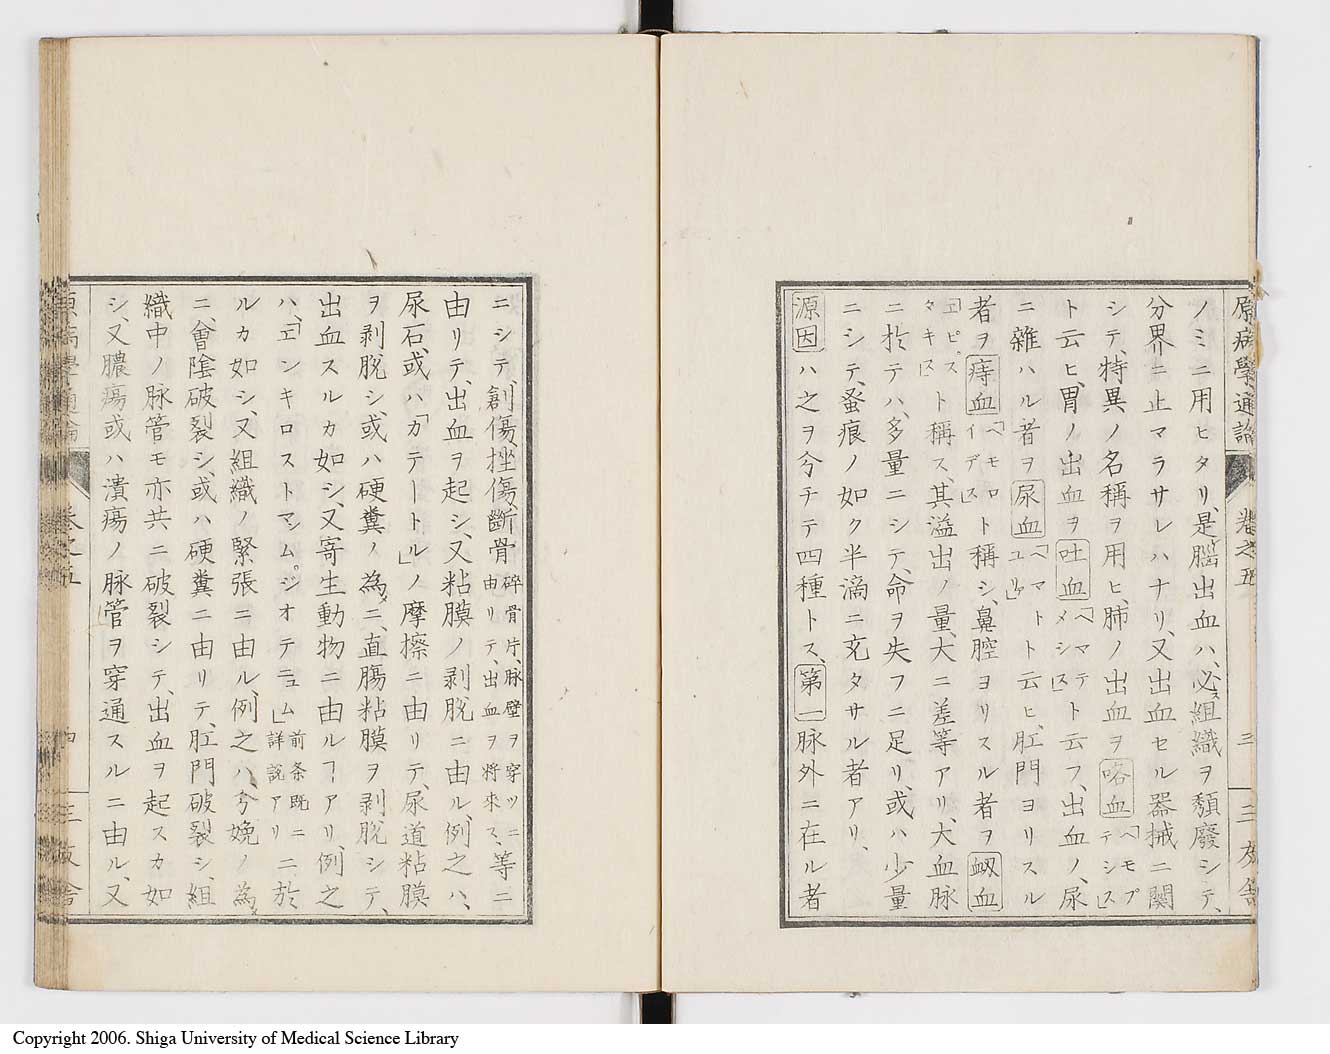 原病學通論 卷之五 三 三友舍
ノミニ用ヒタリ、是、腦出血ハ、必ス組織ヲ頽廢シテ、
分界ニ止マラサレハナリ、又出血セル器械ニ關
シテ、特異ノ名稱ヲ用ヒ、肺ノ出血ヲ咯血「ヘモプテシス」
ト云ヒ、胃ノ出血ヲ吐血「ヘマテメシス」ト云フ、出血ノ、尿
ニ雜ハル者ヲ尿血「ヘマトユリヤ」ト云ヒ、肛門ヨリスル
者ヲ痔血「ヘモロイデス」ト稱シ、鼻腔ヨリスル者ヲ衂血
「エピスタキス」ト稱ス、其溢出ノ量、大ニ差等アリ、大血脉
ニ於テハ、多量ニシテ、命ヲ失フニ足リ、或ハ少量
ニシテ、蚤痕ノ如ク半滴ニ充タサル者アリ、
源因ハ之ヲ分チテ四種トス、第一脉外ニ在ル者
ニシテ、創傷、挫傷、斷骨碎骨片、脉壁ヲ穿ツニ由リテ、出血ヲ將來ス、等ニ
由リテ、出血ヲ起シ、又粘膜ノ剥脱ニ由ル、例之ハ、
尿石、或ハ「カテートル」ノ摩擦ニ由リテ、尿道粘膜
ヲ剥脱シ、或ハ硬糞ノ為ニ、直膓粘膜ヲ剥脱シテ、
出血スルカ如シ、又寄生動物ニ由ルヿアリ、例之
ハ、「エンキロストマムジオテニュム」前条既ニ詳説アリニ於
ルカ如シ、又組織ノ緊張ニ由ル、例之ハ、分娩ノ為
ニ、會陰破裂シ、或ハ硬糞ニ由リテ、肛門破裂シ、組
織中ノ脉管モ亦共ニ破裂シテ、出血ヲ起スカ如
シ、又膿瘍或ハ潰瘍ノ脉管ヲ穿通スルニ由ル、又
原病學通論 卷之五 三友舍
Copyright 2006. Shiga University of Medical Science Library